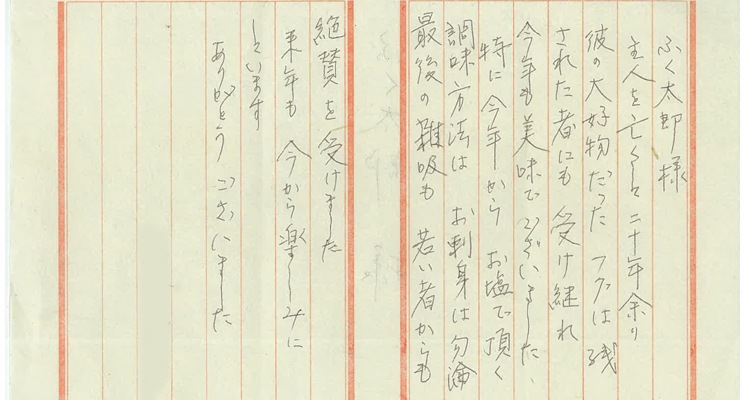 ふく太郎様
主人を亡くして二十年余り
彼の大好物だった フグは 残
された者にも 受け継れ
今年も美味でございました、
特に 今年から お塩で頂く
調味方法は お刺身は勿論
最後の雑吸も 若い者からも
絶賛を受けました
来年も 今から楽しみに
しています
ありがとう ございました